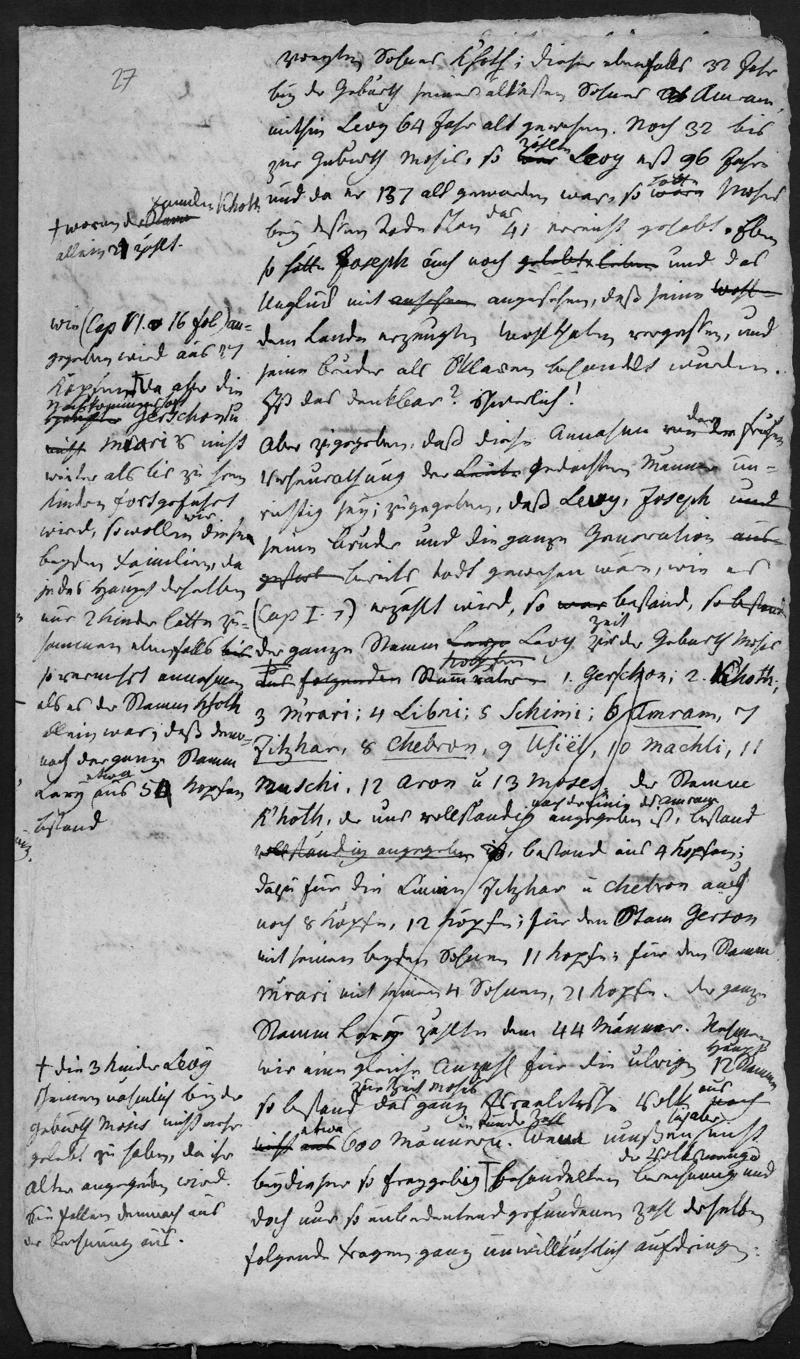 27
zweyten Sohnes Khoth; dieser ebenfalls 32 Jahr
bey der Geburth seines ältesten Sohnes Amram,
mithin Levy 64 Jahr alt gewesen. Noch 32 bis
zur Geburth Mosis, so zählte Levy erst 96 Jahr
und da er 137 alt geworden war, so hätte Moses
bey dessen Tode schon das 41 erreicht gehabt. Eben
so hätte Joseph auch noch gelebt und das
Unglück mit angesehen, daß seine
dem Lande erzeugten Wohlthaten vergessen, und
seine Brüder als Sklaven behandelt wurden.
Ist das denkbar? Schwerlich!
Aber zugegeben, daß diese Annahme von der frühen
Verheurathung der Leute gedachten Männer un-
richtig sey; zugegeben, daß Levy, Joseph und
seine Brüder und die ganze Generation aus-
gestorben bereits todt gewesen wären, wie es
(Cap I. 7) erzählt wird, so war bestand, so bestand
der ganze Stamm Levy Levy zur Zeit der Geburth Mosis
aus folgenden Köpfen 1. Gerschon; 2. Khoth;
3 Mrari; 4 Libni; 5 Schimi; 6 Amram, 7
Jitzhar, 8 Chebron, 9 Usiël, 10 Machli, 11
Muschi, 12 Aron u 13 Moses, der Stamm
K'hoth, der uns vollständig angegeben ist, bestand
vollständig angegeben ist, bestand aus 4 Köpfen;
dazu für die Linien Jitzhar u Chebron auch
noch 8 Köpfe, 12 Köpfe; für den Stam Gerson
mit seinen beyden Söhnen 11 Köpfe; für den Stamm
Mrari mit seinen 4 Söhnen, 21 Köpfe. Der ganze
Stamm Levy zählte denn 44 Männer. Nehmen
wir eine gleiche Anzahl für die übrigen 12 Stämme
so bestand zur Zeit Mosis das ganze Israelitische Volk aus
etwa 600 Männern. in runder Zahl
bey dieser so freygebig behandelten Berechnung der Volksmenge und
doch nur so unbedeutend gefundenen Zahl derselben
folgende Fragen ganz unwillkürlich aufdringen:
† wovon die Familie Khoth
allein zählt.
wie (Cap VI. 16 fol) an-
gegeben wird aus 27
Köpfen † da aber die
Nachkommenschaft
Gerschon u
Mrari's nicht
weiter als bis zu den
Kindern fortgeführt
wird, so wollen wir diese
beyden Familien, da
jedes Haupt derselben
nur 2 Kinder hatte zu-
sammen ebenfalls
so vermehrt annehmen
als es der Stamm Khoth
allein war; daß dem-
nach der ganze Stamm
Levy etwa aus 54 Köpfen
bestand
† die 3 Kinder Levy
scheinen nähmlich bey der
Geburth Mosis nicht mehr
gelebt zu haben, da ihr
Alter angegeben wird.
Sie fallen demnach aus
der Rechnung aus.